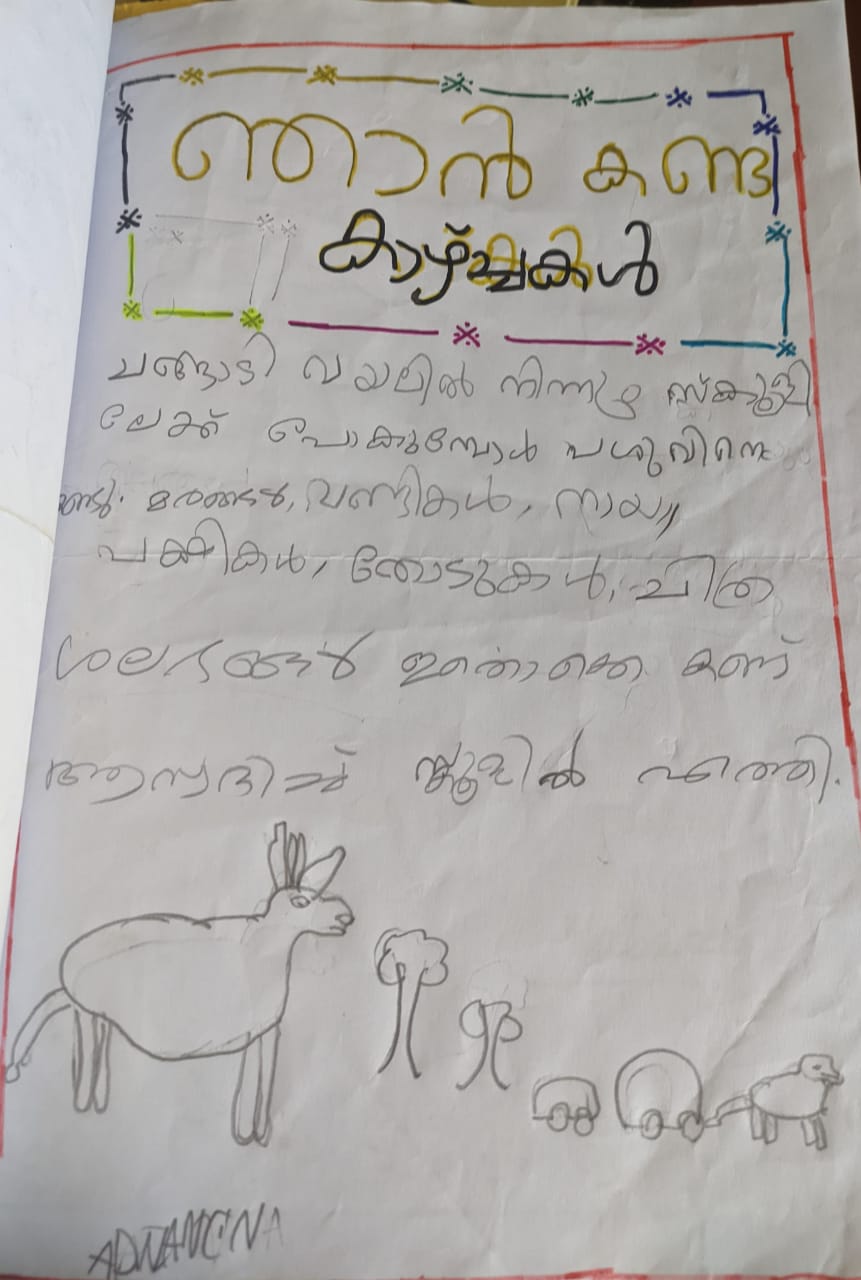 ഞാൻ കണ്ട
കാഴ്ച്ചകൾ
ചങ്ങാടി വയലിൽ നിന്നും സ്കൂളി
ലേക്ക് പൊകുമ്പോൾ പശുവിനെ
കണ്ടു. മരങ്ങൾ, വണ്ടികൾ, നായ,
പക്ഷികൾ, തോടുകൾ, ചിത്ര
ശലഭങ്ങൾ ഇതൊക്കെ കണ്ട്
ആസ്വദിച്ച് സ്കൂളിൽ എത്തി.